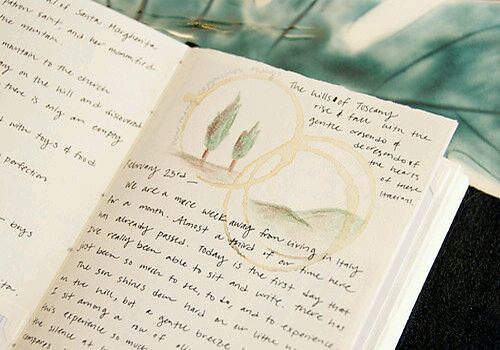 of Santa Margherita
patron saint and her mummified
the mountain.
mountain to the church
on the hill and discovered
there is only an empty
with toys & food
perfection
- boys
The hills of Tuscany
rise & fall with the
gentle cresendo &
decresendo of
the hearts
of these
Italians.
February 23rd -
We are a mere week away from living in Italy
for a month. Almost a third of our time here
has already passed. Today is the first day that
I've really been able to sit and write. There has
just been so much to see, to do, and to experience
The sun shines down hard on our little
in the hill, but a gentle breeze
I sit among a row of
this experience so much
the silence at
compares